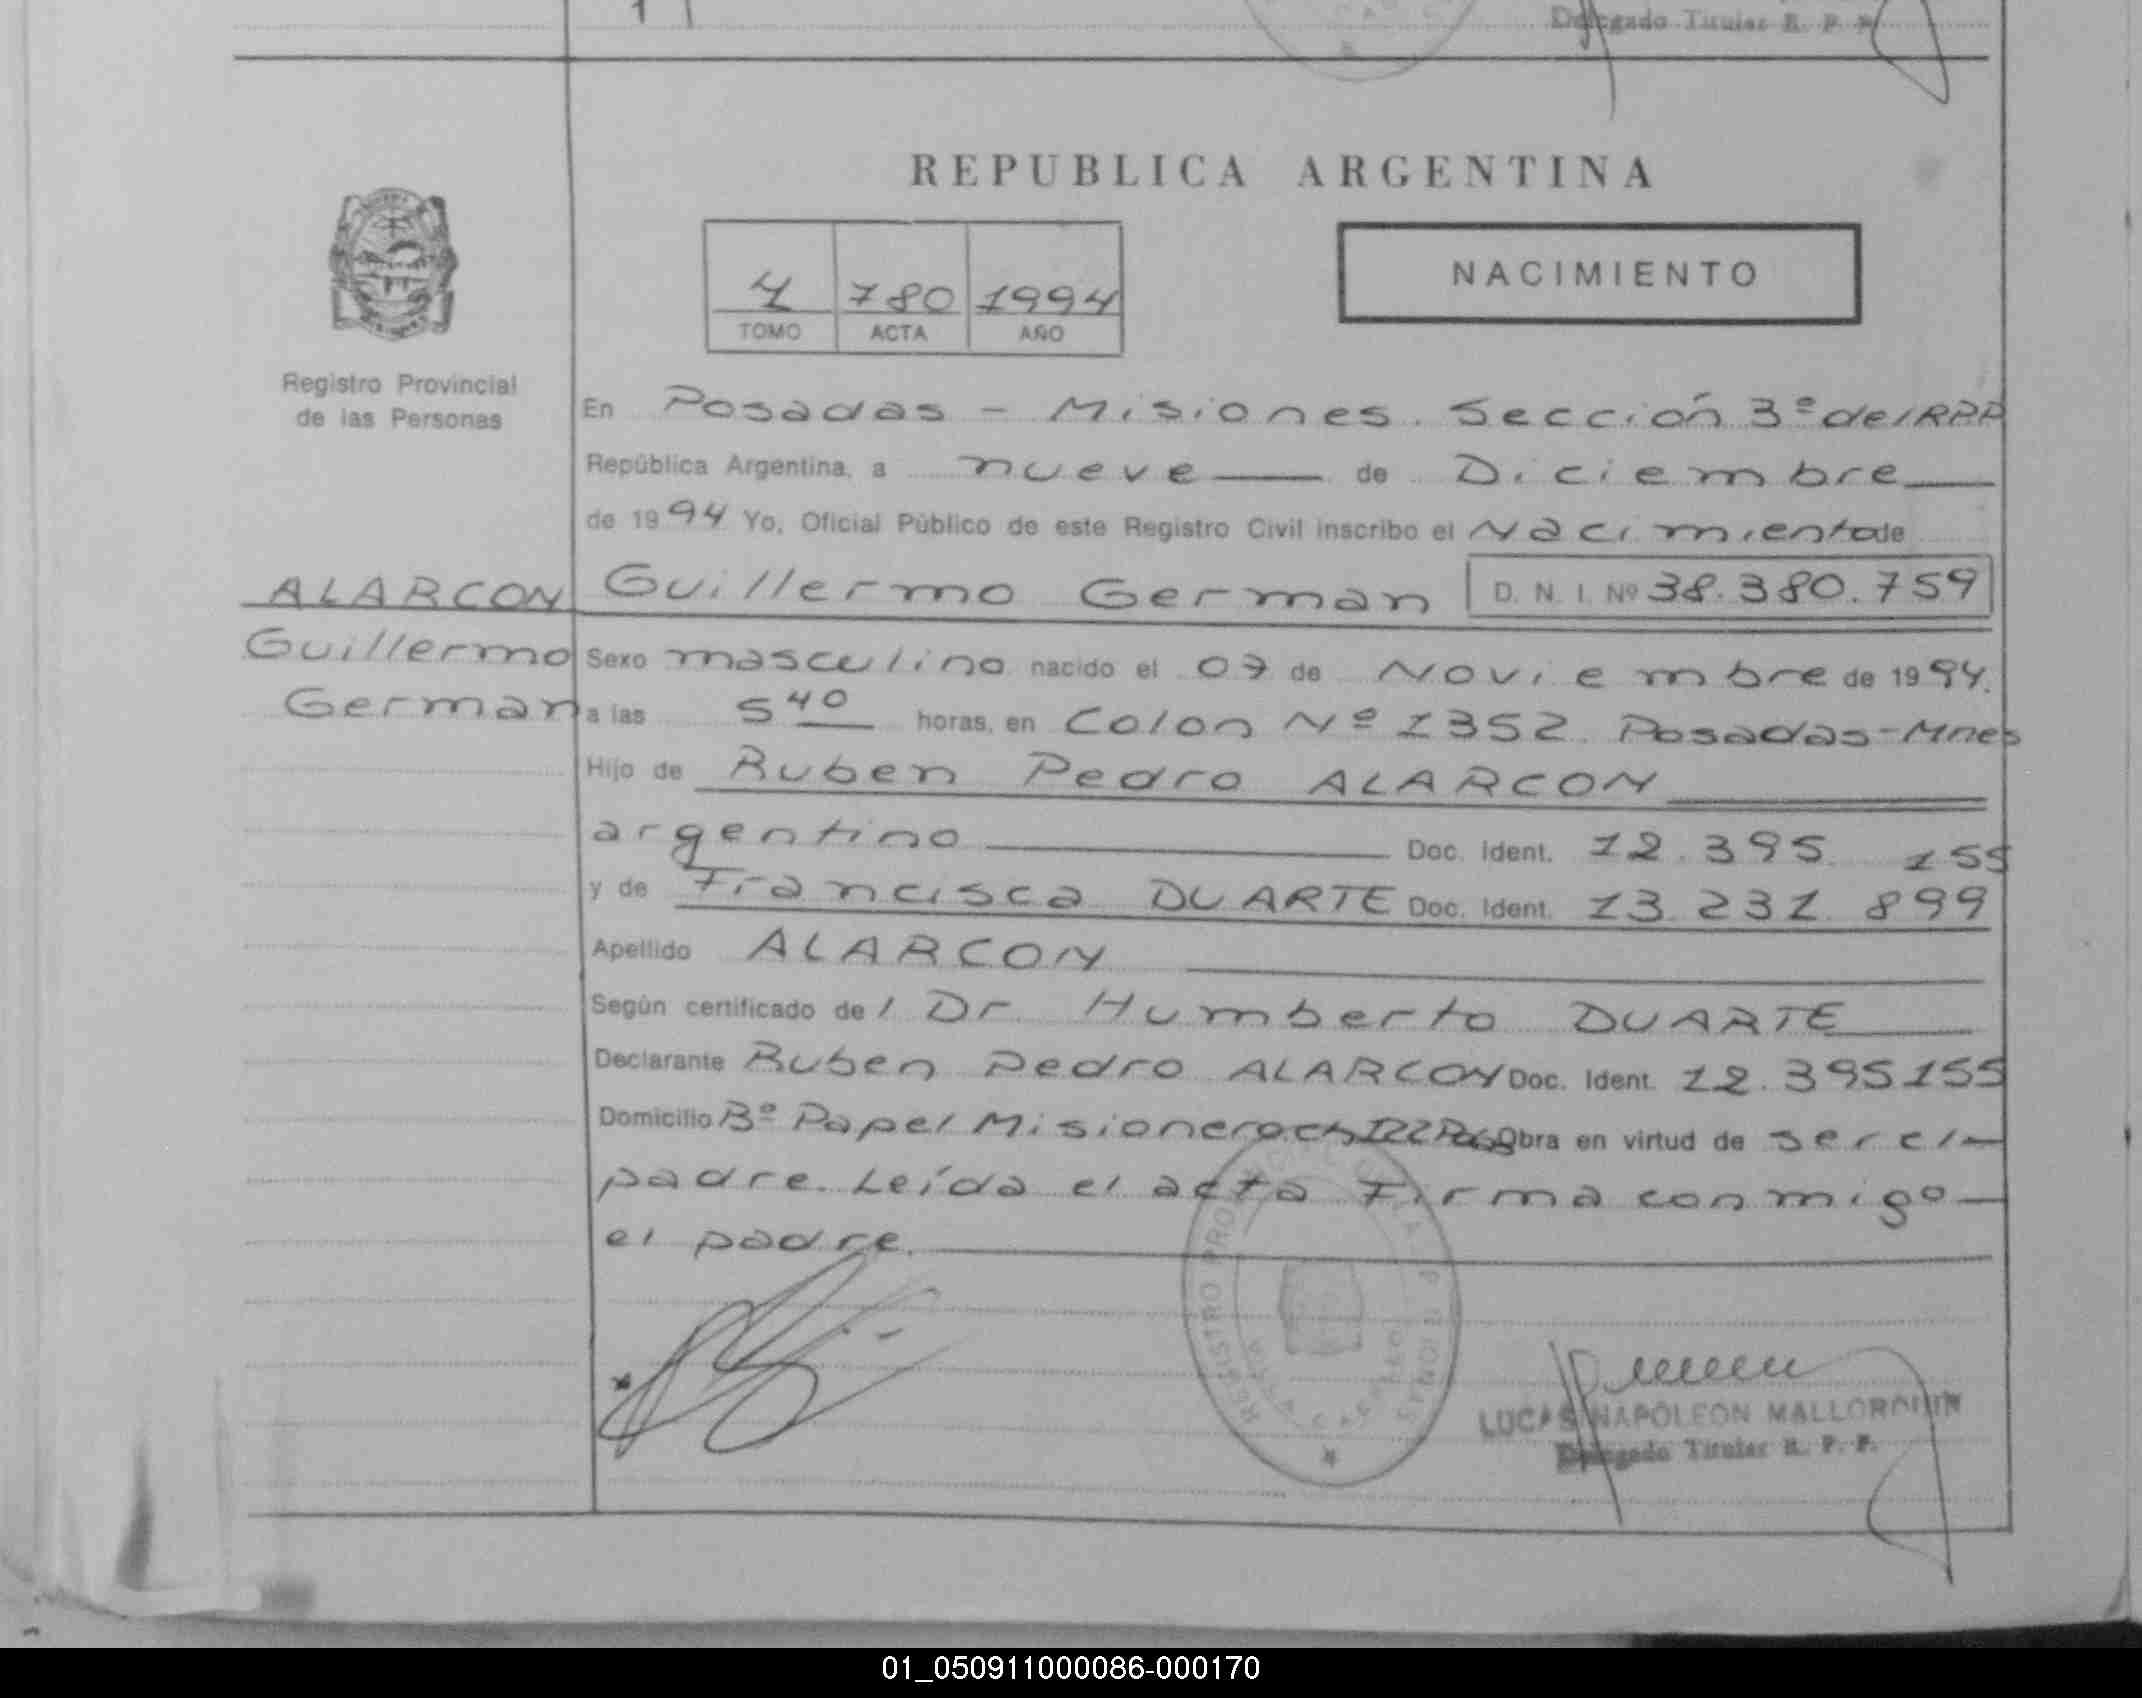 Delegado Titular R. P. P.
REPUBLICA ARGENTINA
4 780 1994
TOMO ACTA AÑO
NACIMIENTO
Registro Provincial
de las Personas
En Posadas - Misiones. Sección 3º del RPP
República Argentina, a nueve de Diciembre
de 1994 Yo, Oficial Público de este Registro Civil inscribo el Nacimiento de
ALARCON Guillermo German D. N. I. Nº 38.380.759
Guillermo Sexo masculino nacido el 07 de Noviembre de 1994.
German a las 5 40 horas, en Colon Nº 1352. Posadas-Mnes
Hijo de Ruben Pedro ALARCON
argentino Doc. Ident. 12.395.155
y de Francisca DUARTE Doc. Ident. 13.231.899
Apellido ALARCON
Según certificado del Dr. Humberto DUARTE
Declarante Ruben Pedro ALARCON Doc. Ident. 12.395155
Domicilio Bº Papel Misionero Obra en virtud de ser el
padre. Leída el acta Firma conmigo
el padre.
REGISTRO PROVINCIAL
LUCAS NAPOLEON MALLORQUIN
Delegado Titular R. P. P.
01_050911000086-000170